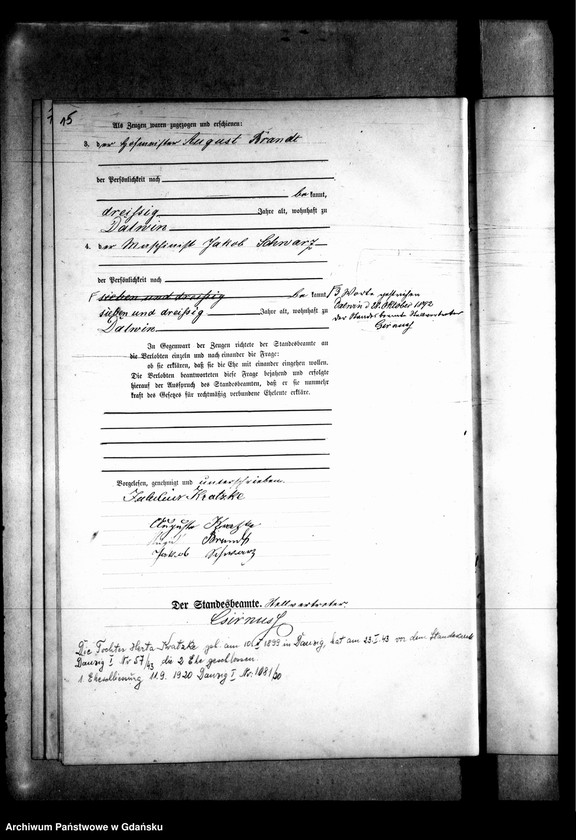 15
Als Zeugen waren zugezogen und erschienen:
3. der Hofmeister August Brandt
der Persönlichkeit nach
be kannt,
dreißig Jahre alt, wohnhaft zu
Dalwin
4. der Maschinist Jakob Schwarz
der Persönlichkeit nach
sieben und dreißig be kannt,
sieben und dreißig Jahre alt, wohnhaft zu
Dalwin
3 Worte gestrichen
Dalwin d 28. Oktober
der Standesbeamte Stellvertreter
In Gegenwart der Zeugen richtete der Standesbeamte an
die Verlobten einzeln und nach einander die Frage:
ob sie erklären, daß sie die Ehe mit einander eingehen wollen.
Die Verlobten beantworteten diese Frage bejahend und erfolgte
hierauf der Ausspruch des Standesbeamten, daß er sie nunmehr
kraft des Gesetzes für rechtmäßig verbundene Eheleute erkläre.
Vorgelesen, genehmigt und unterschrieben.
Kratzke
Auguste
August Brandt
Jakob Schwarz
Der Standesbeamte. Stellvertreter.
Die Tochter Herta Kratzke geb. am 1899 in Danzig, hat am 23.I.43 vor dem Standesamt
Danzig I Nr 57/43 die 2 Ehe geschlossen.
1. Eheschließung 11.9. 1920 Danzig I Nr. 1081/20
Archiwum Państwowe w Gdańsku